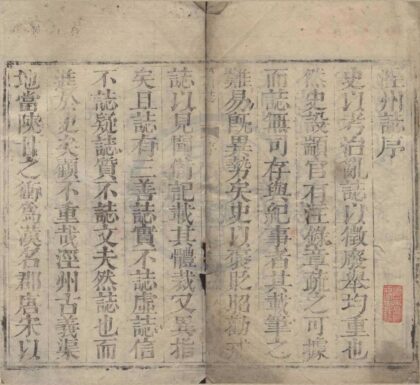 涇州誌序
史以考治亂誌以徵廢舉均重也
然史設顓官有注錄章疏之可據
而誌無可存與紀事者其載筆之
難易旣異勢矣史以褒貶昭勸戒
誌以見聞備記載其體裁又異指
矣且誌有三善誌實不誌虛誌信
不誌疑誌質不誌文夫然誌也而
進於史矣顧不重哉涇州古義渠
地當陝北之衝爲漢名郡唐宋以